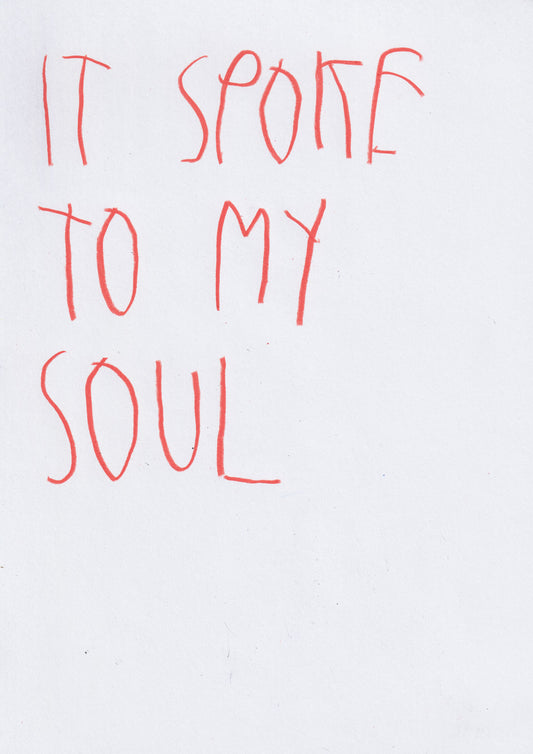 IT SPOKE
TO MY
SOUL